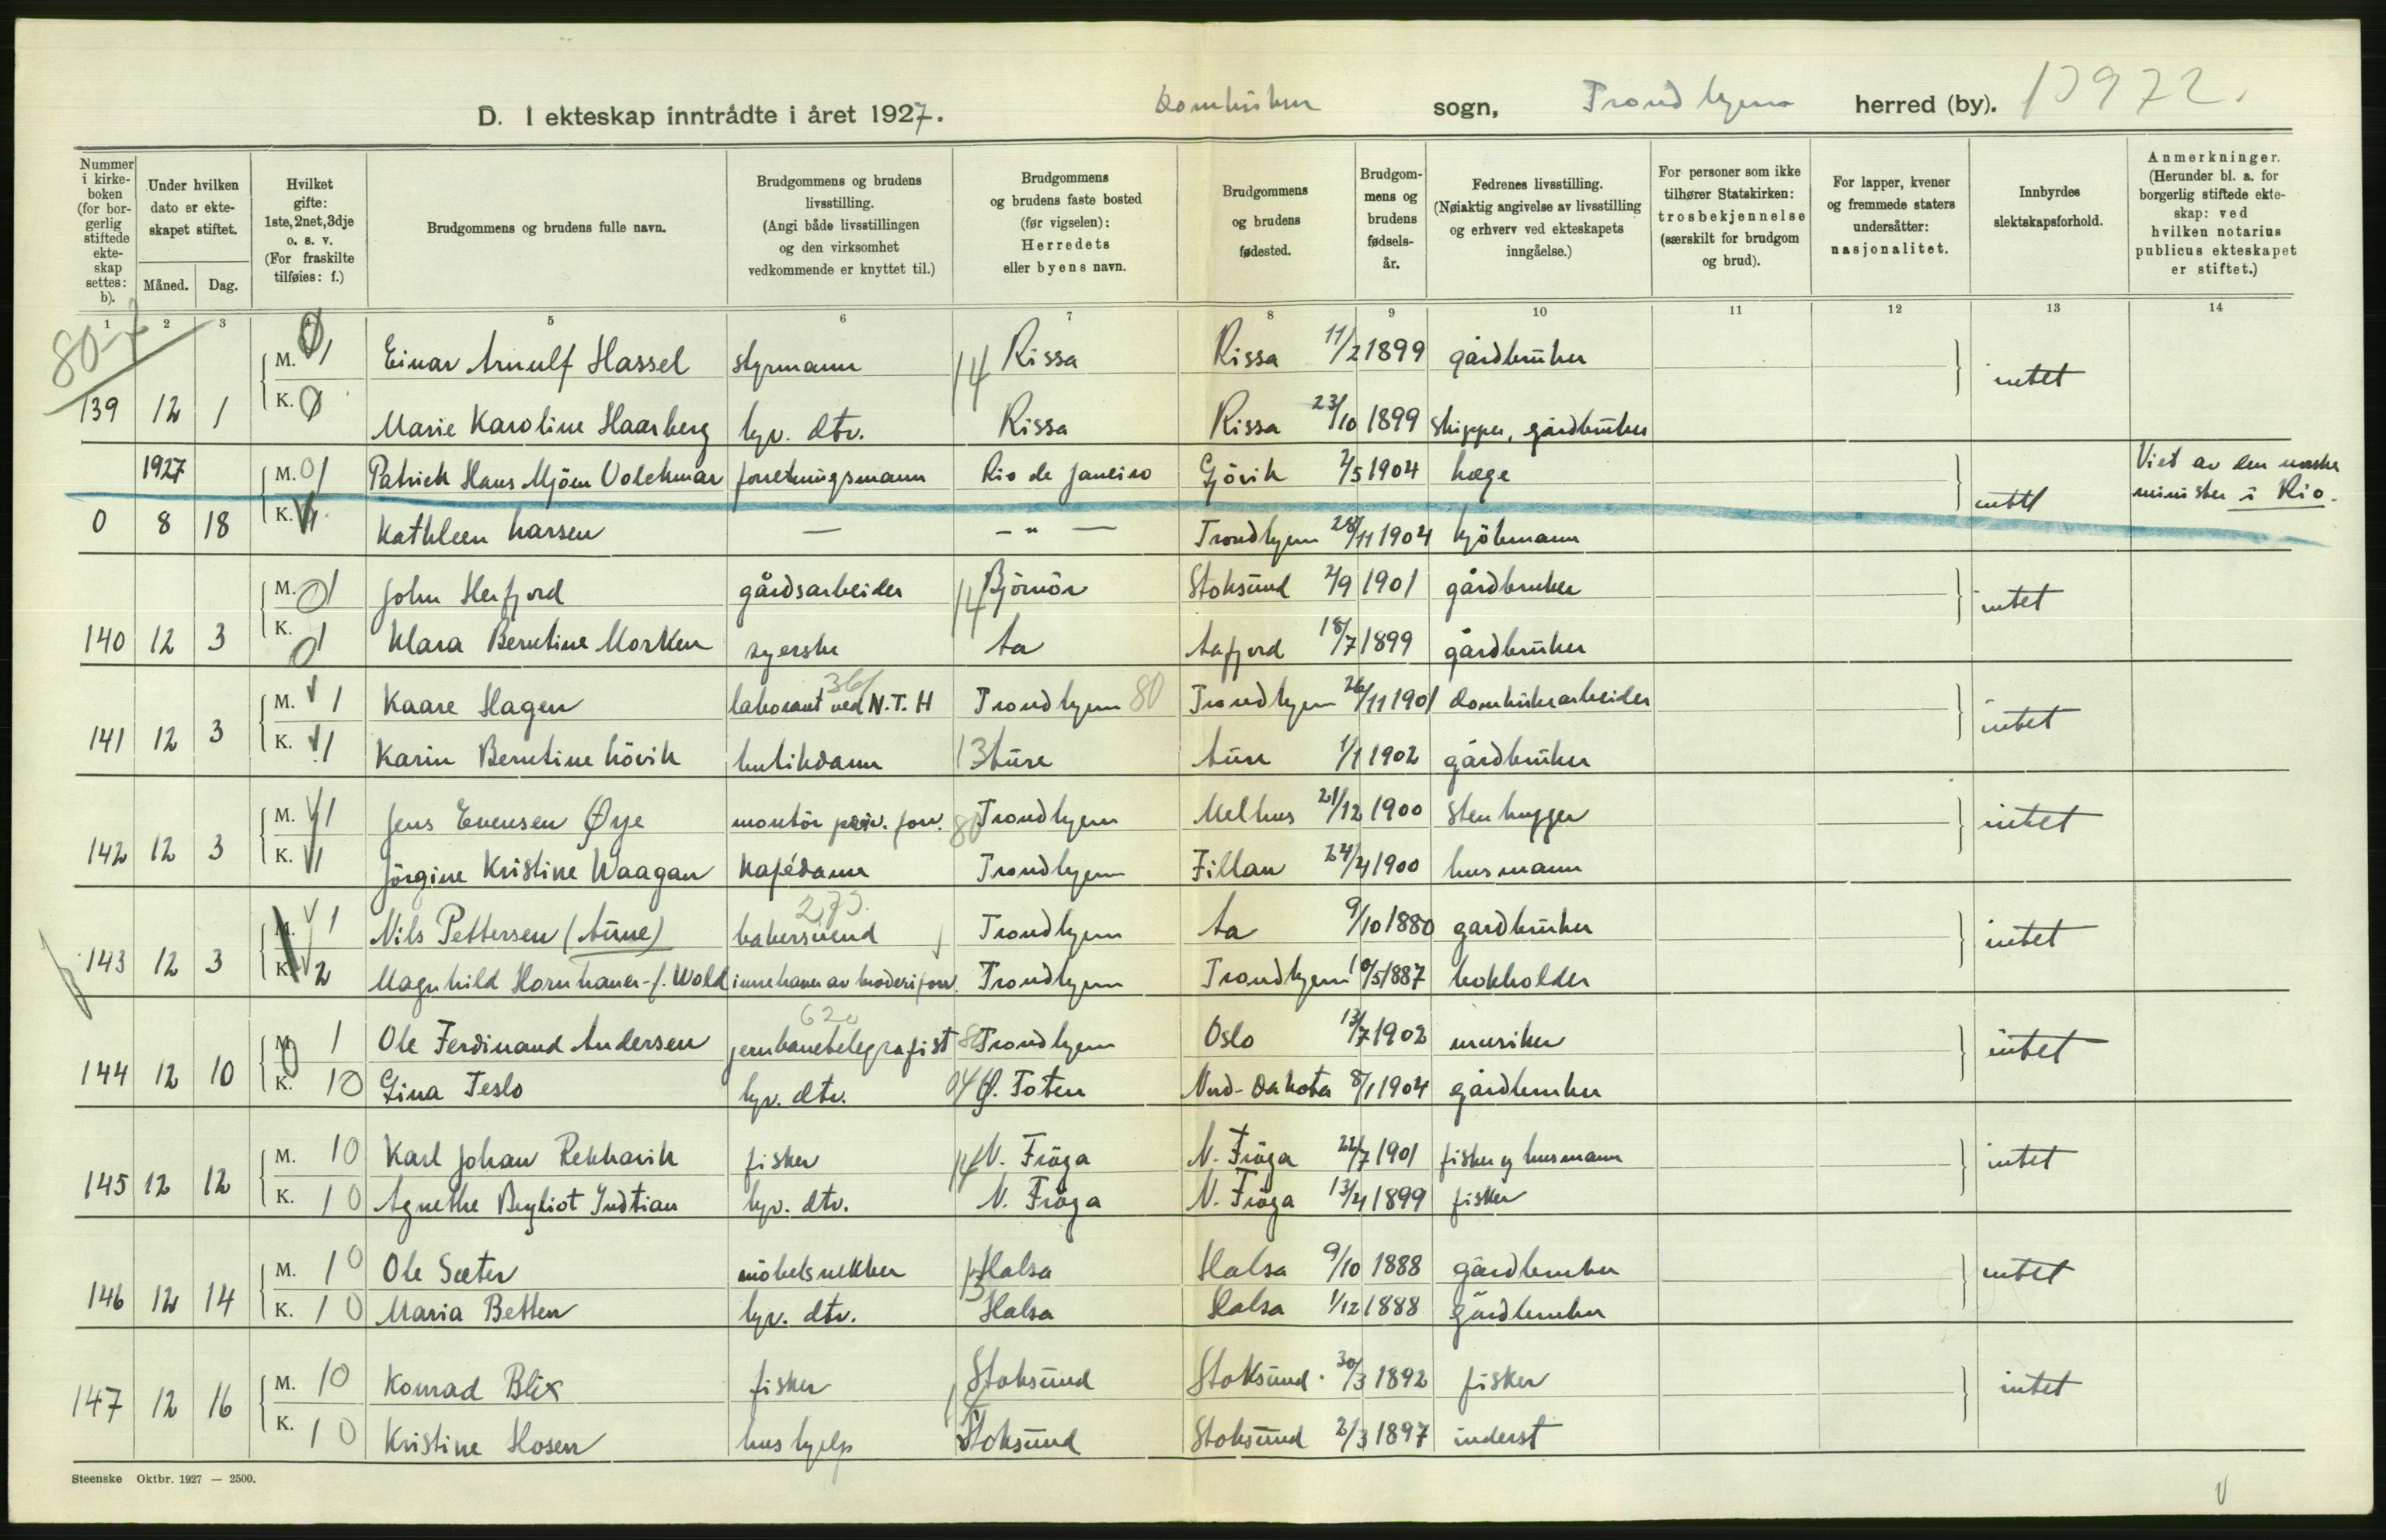 D. I ekteskap inntrådte i året 1927. Domkirken sogn, Trondhjem herred (by). 13972.
Nummer i kirkeboken (for borgerlig stiftede ekteskap settes: b).
Under hvilken dato er ekteskapet stiftet.
Måned. Dag.
Hvilket gifte: 1ste, 2net, 3dje o. s. v. (For fraskilte tilføies: f.)
Brudgommens og brudens fulle navn.
Brudgommens og brudens livsstilling. (Angi både livsstillingen og den virksomhet vedkommende er knyttet til.)
Brudgommens og brudens faste bosted (før vigselen): Herredets eller byens navn.
Brudgommens og brudens fødested.
Brudgommens og brudens fødselsår.
Fedrenes livsstilling. (Nøiaktig angivelse av livsstilling og erhverv ved ekteskapets inngåelse.)
For personer som ikke tilhører Statskirken: trosbekjennelse (særskilt for brudgom og brud).
For lapper, kvener og fremmede staters undersåtter: nasjonalitet.
Innbyrdes slektskapsforhold.
Anmerkninger. (Herunder bl. a. for borgerlig stiftede ekteskap: ved hvilken notarius publicus ekteskapet er stiftet.)
1 2 3 4 5 6 7 8 9 10 11 12 13 14
80-7
M. 0 1 Einar Arnulf Hassel styrmann 14 Rissa Rissa 11/2 1899 gårdbruker intet
139 12 1 K. 0 Marie Karoline Haarberg hjv. dtr. Rissa Rissa 23/10 1899 skipper, gårdbruker
1927 M. 0 1 Patrick Hans Mjøen Volckmar forretningsmann Rio de Janeiro Gjövik 2/5 1904 læge intet Viet av den norske minister i Rio.
0 8 18 K. 1 Kathleen Larsen — - " — Trondhjem 28/11 1904 kjöbmann
M. 0 1 John Herfjord gårdsarbeider 14 Björnör Stoksund 2/9 1901 gårdbruker intet
140 12 3 K. 0 1 Klara Berntine Morken syerske Aa Aafjord 18/7 1899 gårdbruker
M. 1 Kaare Hagen laborant ved N.T.H 36/ Trondhjem 80 Trondhjem 26/11 1901 domkirkearbeider intet
141 12 3 K. 1 Karin Berntine Lövik butikdame 13 Aure Aure 1/1 1902 gårdbruker
M. 1 Jens Evensen Øye montör priv. forr. 80 Trondhjem Melhus 21/12 1900 stenhugger intet
142 12 3 K. 1 Jörgine Kristine Waagan kafédame Trondhjem Fillan 24/4 1900 husmann
M. 1 Nils Pettersen (Aune) bakersvend 273. Trondhjem Aa 9/10 1880 gardbruker intet
143 12 3 K. 2 Magnhild Hornhaver f. Wold innehaver av broderiforr. Trondhjem Trondhjem 10/5 1887 bokholder
M. 1 Ole Ferdinand Andersen jernbanetelegrafist 620 80 Trondhjem Oslo 13/7 1902 musiker intet
144 12 10 K. 1 0 Gina Teslo hjv. dtr. 04 Ø. Toten Nord-Dakota 8/1 1904 gårdbruker
M. 1 0 Karl Johan Rekkavik fisker 14 N. Fröya N. Fröya 22/7 1901 fisker og husmann intet
145 12 12 K. 1 0 Agnethe Bergliot Indtian hjv. dtr. N. Fröya N. Fröya 13/4 1899 fisker
M. 1 0 Ole Sæter möbelsnekker 13 Halsa Halsa 9/10 1888 gårdbruker intet
146 12 14 K. 1 0 Maria Betten hjv. dtr. Halsa Halsa 1/12 1888 gårdbruker
M. 1 0 Konrad Blix fisker 14 Stoksund Stoksund 30/3 1892 fisker intet
147 12 16 K. 1 0 Kristine Hosen hushjelp Stoksund Stoksund 2/3 1897 inderst
Steenske Oktbr. 1927 — 2500.